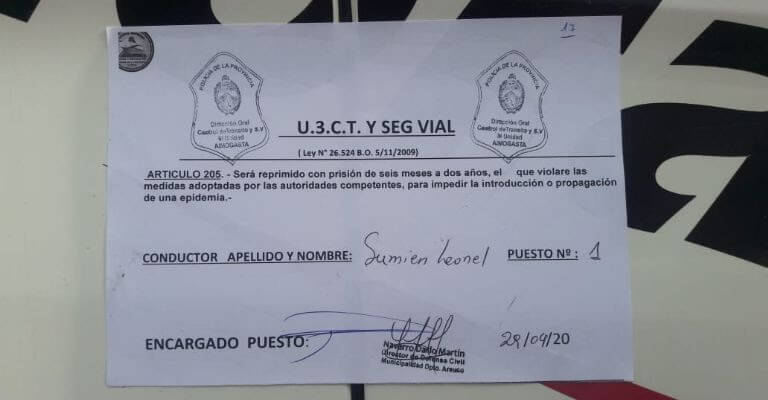 17
POLICIA DE LA PROVINCIA
Dirección Gral
Control de Transito y S.V
III Unidad
AIMOGASTA
POLICIA DE LA PROVINCIA
Dirección Gral
Control de Transito y S.V
III Unidad
AIMOGASTA
U.3.C.T. Y SEG VIAL
( Ley N° 26.524 B.O. 5/11/2009)
ARTICULO 205. - Será reprimido con prisión de seis meses a dos años, el que violare las
medidas adoptadas por las autoridades competentes, para impedir la introducción o propagación
de una epidemia.-
CONDUCTOR APELLIDO Y NOMBRE: Sumien Leonel PUESTO Nº : 1
ENCARGADO PUESTO:
Navarro Darío Martín
Director de Defensa Civil
Municipalidad Dpto. Arauco
29/04/20